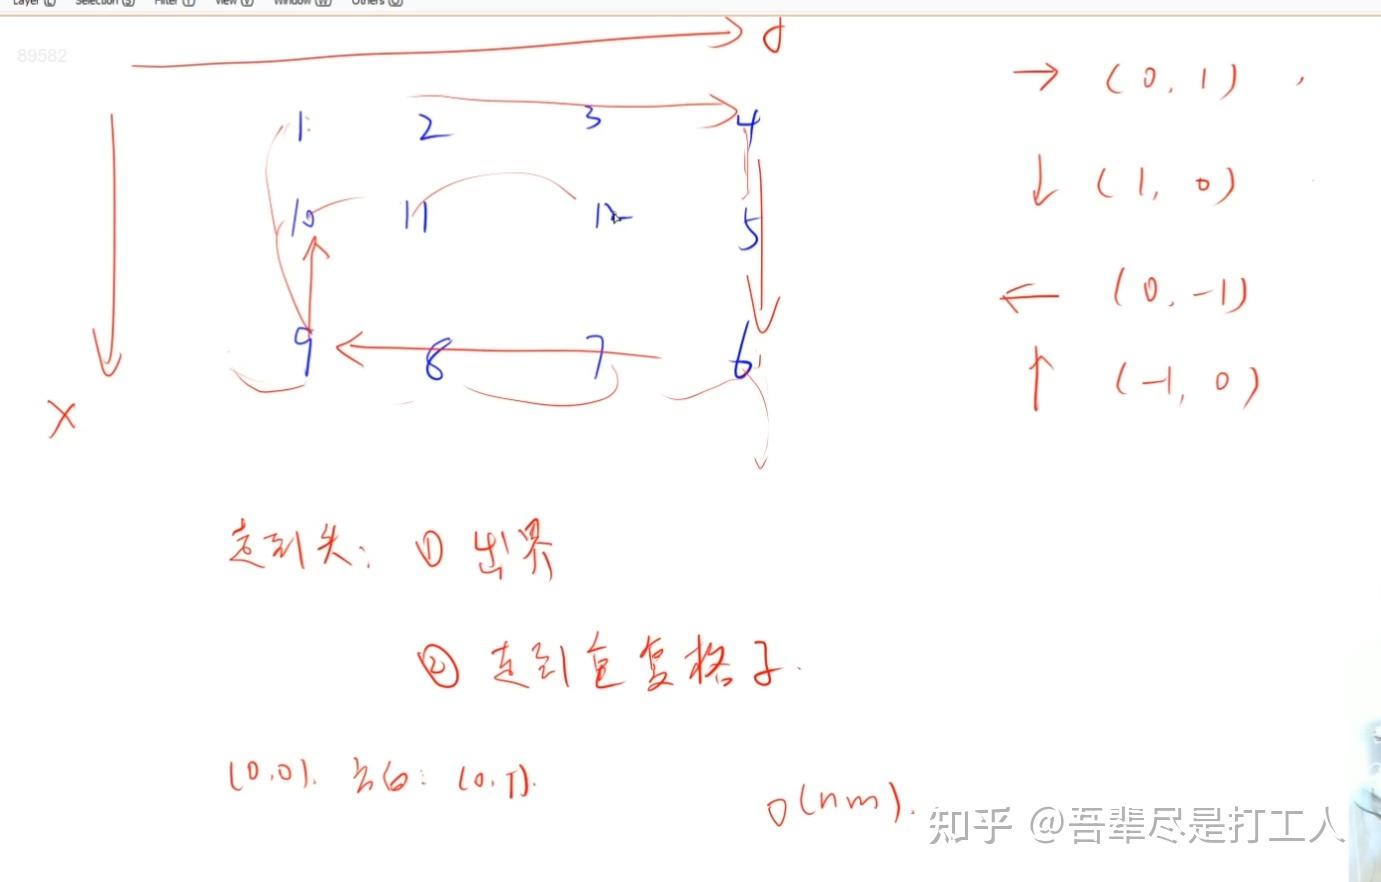 Layer (L) Selection (S) Filter (T) View (V) Window (W) Others (O)
89582
y
→ (0, 1)
1 2 3 4
↓ (1, 0)
10 11 12 5
← (0, -1)
9 8 7 6
↑ (-1, 0)
X
走到头: ① 出界
② 走到重复格子.
(0,0). 方向: (0,1).
O(nm).
知乎 @吾辈尽是打工人